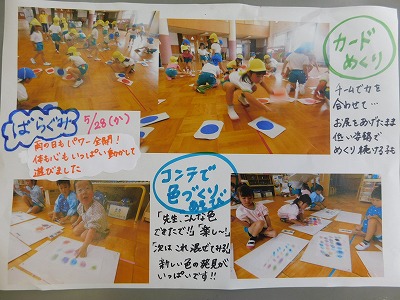 カード
めくり
チームで力を
合わせて…
お尻をあげたまま
低い姿勢で
めくり続ける子も
ばらぐみ
5/28(か)
雨の日もパワー全開!
体も心もいっぱい動かして
遊びました
コンテで
色づくり
「先生、こんな色
できたで!」「楽し〜!」
「次はこれ混ぜてみる!」
新しい色の発見が
いっぱいです!!